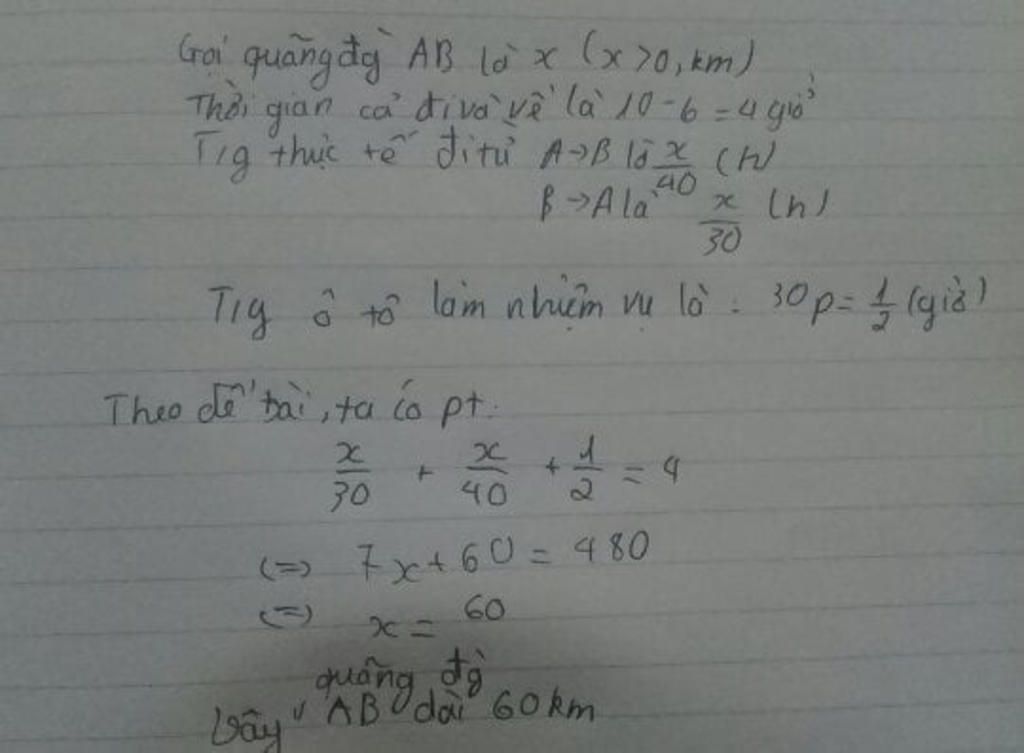 Gọi quãng đg AB là x (x >0, km)
Thời gian cả đi và về là 10 - 6 = 4 giờ
T/g thực tế đi từ A→B là x/40 (h)
B→A là x/30 (h)
T/g ô tô làm nhiệm vụ là : 30p = 1/2 (giờ)
Theo đề bài, ta có pt:
x/30 + x/40 + 1/2 = 4
(=) 7x + 60 = 480
(=) x = 60
Vậy quãng đg AB dài 60km